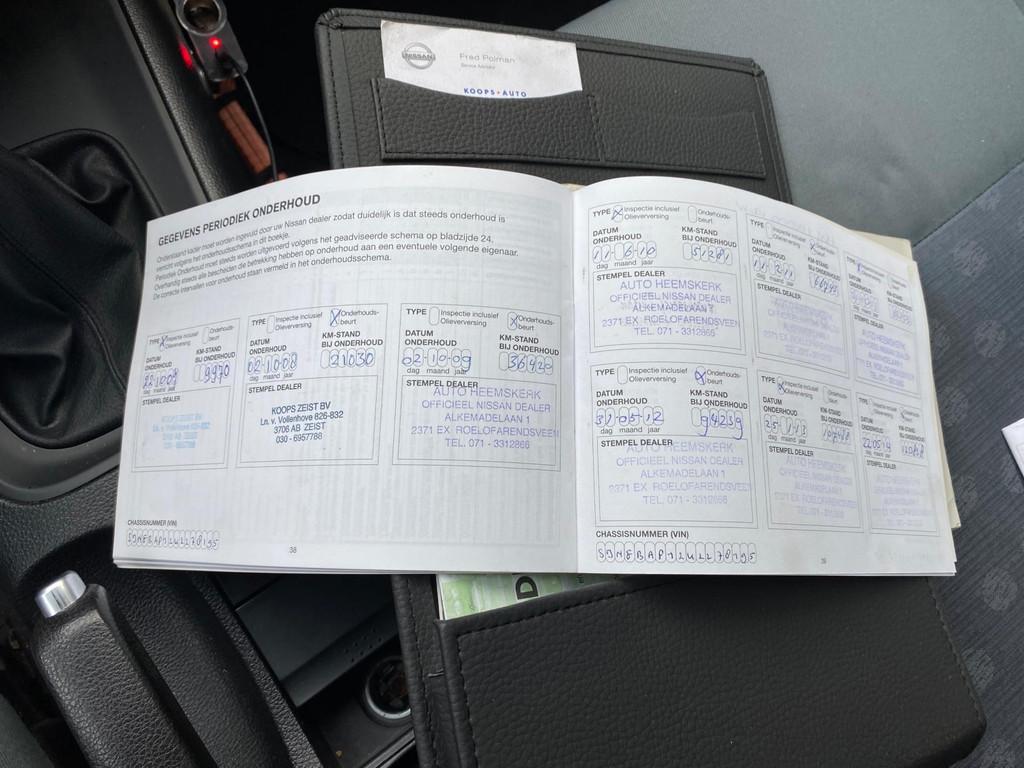 NISSAN
Fred Polman
Service Adviseur
KOOPS•AUTO
GEGEVENS PERIODIEK ONDERHOUD
Onderstaand kader moet worden ingevuld door uw Nissan dealer zodat duidelijk is dat steeds onderhoud is
verricht volgens het onderhoudsschema in dit boekje.
Periodiek Onderhoud moet steeds worden uitgevoerd volgens het geadviseerde schema op bladzijde 24,
Overhandig steeds alle bescheiden die betrekking hebben op onderhoud aan een eventuele volgende eigenaar.
De correcte intervallen voor onderhoud staan vermeld in het onderhoudsschema.
TYPE Inspectie inclusief Olieverversing Onderhouds-beurt
DATUM ONDERHOUD KM-STAND BIJ ONDERHOUD
9970
dag maand jaar
STEMPEL DEALER
KOOPS ZEIST BV
Ln. v. Vollenhove 826-832
3706 AB ZEIST
030 - 6957788
TYPE Inspectie inclusief Olieverversing Onderhouds-beurt
DATUM ONDERHOUD KM-STAND BIJ ONDERHOUD
02-10-08 21030
dag maand jaar
STEMPEL DEALER
KOOPS ZEIST BV
Ln. v. Vollenhove 826-832
3706 AB ZEIST
030 - 6957788
TYPE Inspectie inclusief Olieverversing Onderhouds-beurt
DATUM ONDERHOUD KM-STAND BIJ ONDERHOUD
02-10-09 36420
dag maand jaar
STEMPEL DEALER
AUTO HEEMSKERK
OFFICIEEL NISSAN DEALER
ALKEMADELAAN 1
2371 EX ROELOFARENDSVEEN
TEL. 071 - 3312866
CHASSISNUMMER (VIN)
38
TYPE Inspectie inclusief Olieverversing Onderhouds-beurt
DATUM ONDERHOUD KM-STAND BIJ ONDERHOUD
51281
dag maand jaar
STEMPEL DEALER
AUTO HEEMSKERK
OFFICIEEL NISSAN DEALER
ALKEMADELAAN 1
2371 EX ROELOFARENDSVEEN
TEL. 071 - 3312866
TYPE Inspectie inclusief Olieverversing Onderhouds-beurt
DATUM ONDERHOUD KM-STAND BIJ ONDERHOUD
dag maand jaar
STEMPEL DEALER
TYPE
DATUM ONDERHOUD KM-STAND BIJ ONDERHOUD
STEMPEL DEALER
TYPE Inspectie inclusief Olieverversing Onderhouds-beurt
DATUM ONDERHOUD KM-STAND BIJ ONDERHOUD
31-05-12 94239
dag maand jaar
STEMPEL DEALER
AUTO HEEMSKERK
OFFICIEEL NISSAN DEALER
ALKEMADELAAN 1
2371 EX ROELOFARENDSVEEN
TEL. 071 - 3312866
TYPE Inspectie inclusief Olieverversing Onderhouds-beurt
DATUM ONDERHOUD KM-STAND BIJ ONDERHOUD
dag maand jaar
STEMPEL DEALER
AUTO HEEMSKERK
OFFICIEEL NISSAN DEALER
ALKEMADELAAN 1
TYPE
DATUM ONDERHOUD KM-STAND BIJ ONDERHOUD
22-05-14
dag maand jaar
STEMPEL DEALER
CHASSISNUMMER (VIN)
39
D